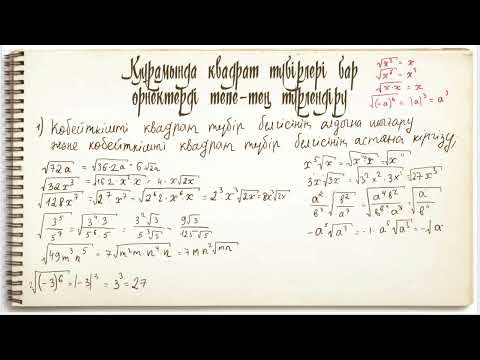 Құрамында квадрат түбірлері бар
өрнектерді тепе-тең түрлендіру
√x² = x
√x⁸ = x⁴
√x·x = x
√(-a)⁶ = |a|³ = a³
1) Көбейткішті квадрат түбір белгісінің алдына шығару
және көбейткішті квадрат түбір белгісінің астына кіргізу
√72a = √36·2a = 6√2a
√32x³ = √16·2·x²·x = 4·x√2x
√128x⁷ = √2⁷x⁷ = √2⁶·2·x⁶·x = 2³x³√2x = 8x³√2x
√3⁵/5⁷ = √3⁴·3/5⁶·5 = 3²√3/5³√5 = 9√3/125√5
√49m³n⁵ = 7√m²m·n⁴·n = 7mn²√mn
√(-3)⁶ = |-3|³ = 3³ = 27
x⁵√x = √x¹⁰x = √x¹¹
3x√3x = √3²x²·3x = √27x³